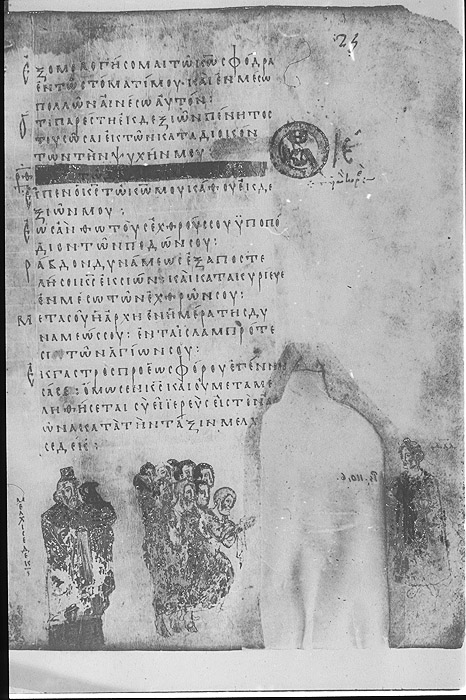 24
ἐξομολογήσομαι τῶ κ̅ω̅ σφόδρα
ἐν τῶ στόματί μου· καὶ ἐν μέσω
πολλῶν αἰνέσω αὐτόν:
ὅτι παρέστη ἐκ δεξιῶν πένητος
τοῦ σῶσαι ἐκ τῶν καταδιωκόν
των τὴν ψυχήν μου
εἶπεν ὁ κ̅ς̅ τῶ κ̅ω̅ μου κάθου ἐκ δε
ξιῶν μου:
ἕως ἂν θῶ τοὺς ἐχθρούς σου ὑποπό
διον τῶν ποδῶν σου:
ῥάβδον δυνάμεως ἐξαποστε
λῆ σοι κ̅ς̅ ἐκ σιών: καὶ κατακυρίευε
ἐν μέσω τῶν ἐχθρῶν σου:
μετὰ σοῦ ἡ ἀρχὴ ἐν ἡμέρα τῆς δυ
νάμεώς σου: ἐν ταῖς λαμπρότη
σι τῶν ἁγίων σου:
ἐκ γαστρὸς πρὸ ἑωσφόρου ἐγέννη
σά σε: ὤμοσεν κ̅ς̅ καὶ οὐ μεταμε
ληθήσεται σὺ εἶ ἱερεὺς εἰς τὸν αἰ
ῶνα κατὰ τὴν τάξιν μελχι
σεδέκ: